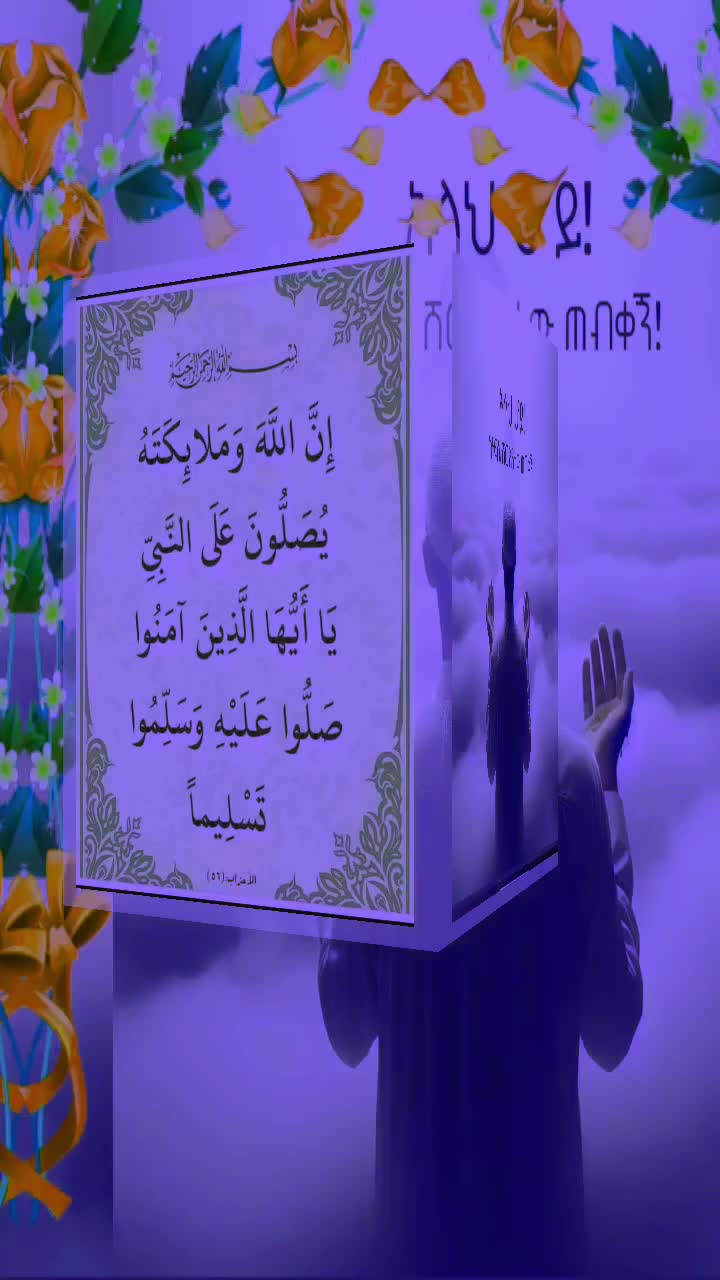 بسم الله الرحمن الرحيم
إِنَّ اللَّهَ وَمَلائِكَتَهُ
يُصَلُّونَ عَلَى النَّبِيِّ
يَا أَيُّهَا الَّذِينَ آمَنُوا
صَلُّوا عَلَيْهِ وَسَلِّمُوا
تَسْلِيماً
الأحزاب: (٥٦)
ጠብቀኝ!